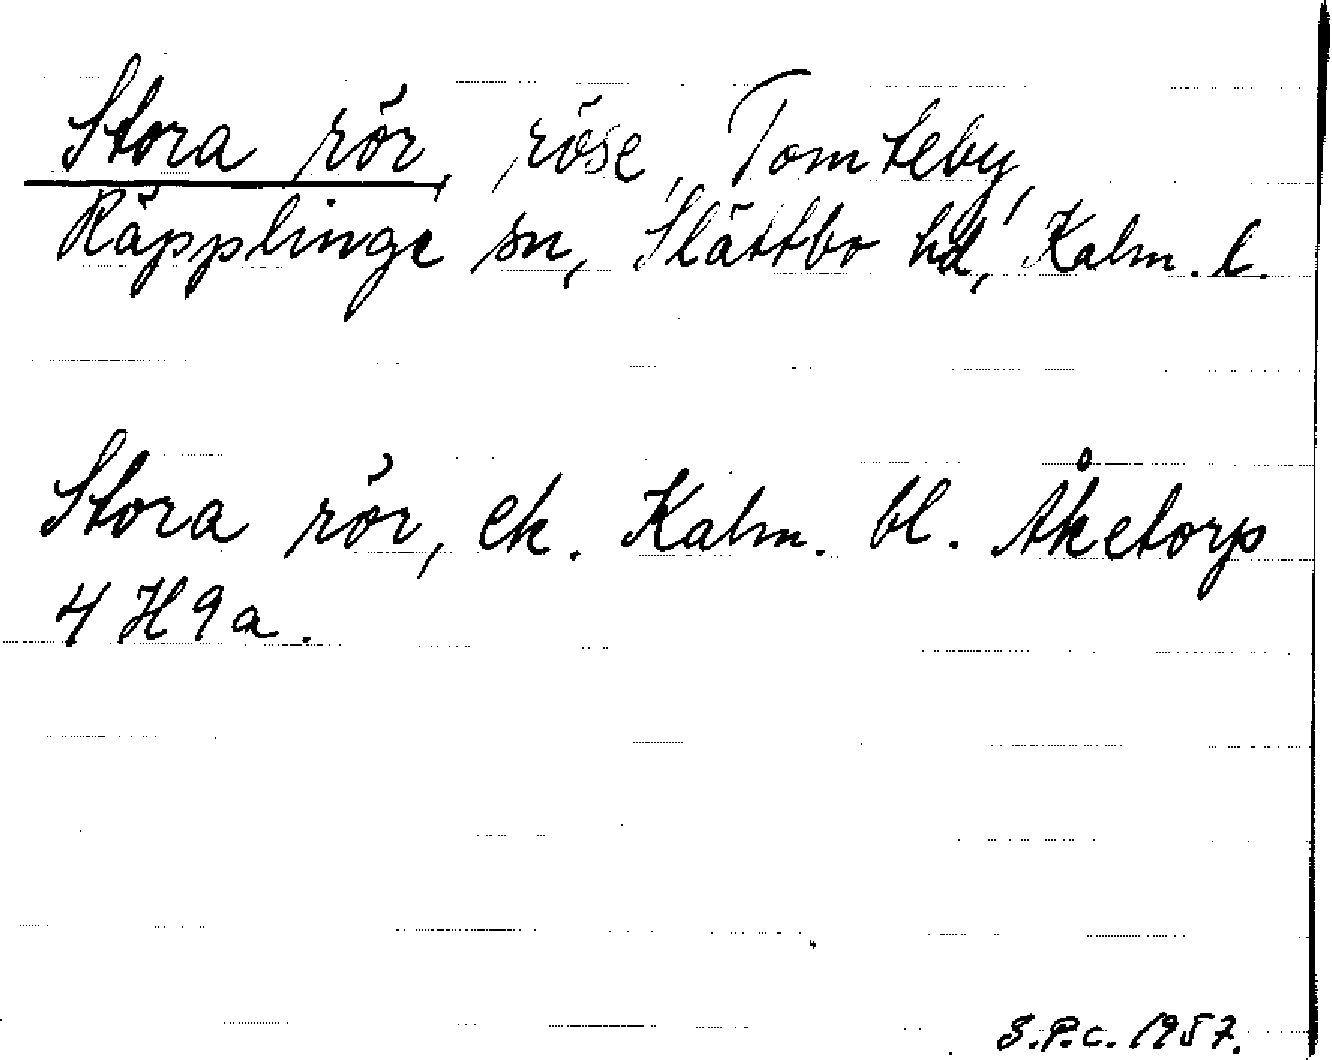 Stora rör, röse, Tomteby,
Räpplinge sn, Slättbo hd, Kalm. l.
Stora rör, ek. Kalm. bl. Åketorp
4 H 9 a.
S.P.c. 1957.